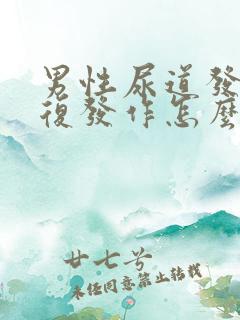 男性尿道發
復發作怎麼
廿七兮
未经同意禁止转载